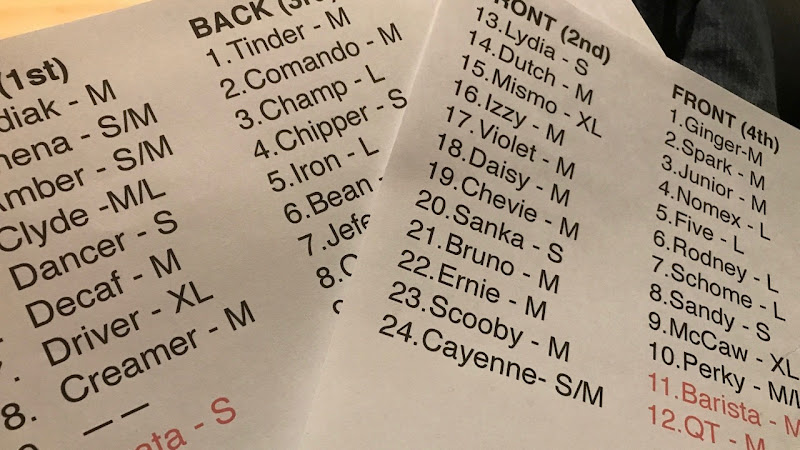 (1st)
diak - M
ena - S/M
mber - S/M
Clyde -M/L
Dancer - S
Decaf - M
Driver - XL
8. Creamer - M
— —
ata - S
BACK (3r
1.Tinder - M
2.Comando - M
3.Champ - L
4.Chipper - S
5.Iron - L
6.Bean -
7.Jefe
8.
RONT (2nd)
13.Lydia - S
14.Dutch - M
15.Mismo - XL
16.Izzy - M
17.Violet - M
18.Daisy - M
19.Chevie - M
20.Sanka - S
21.Bruno - M
22.Ernie - M
23.Scooby - M
24.Cayenne- S/M
FRONT (4th)
1.Ginger-M
2.Spark - M
3.Junior - M
4.Nomex - L
5.Five - L
6.Rodney - L
7.Schome - L
8.Sandy - S
9.McCaw - XL
10.Perky - M/
11.Barista - M
12.QT - M